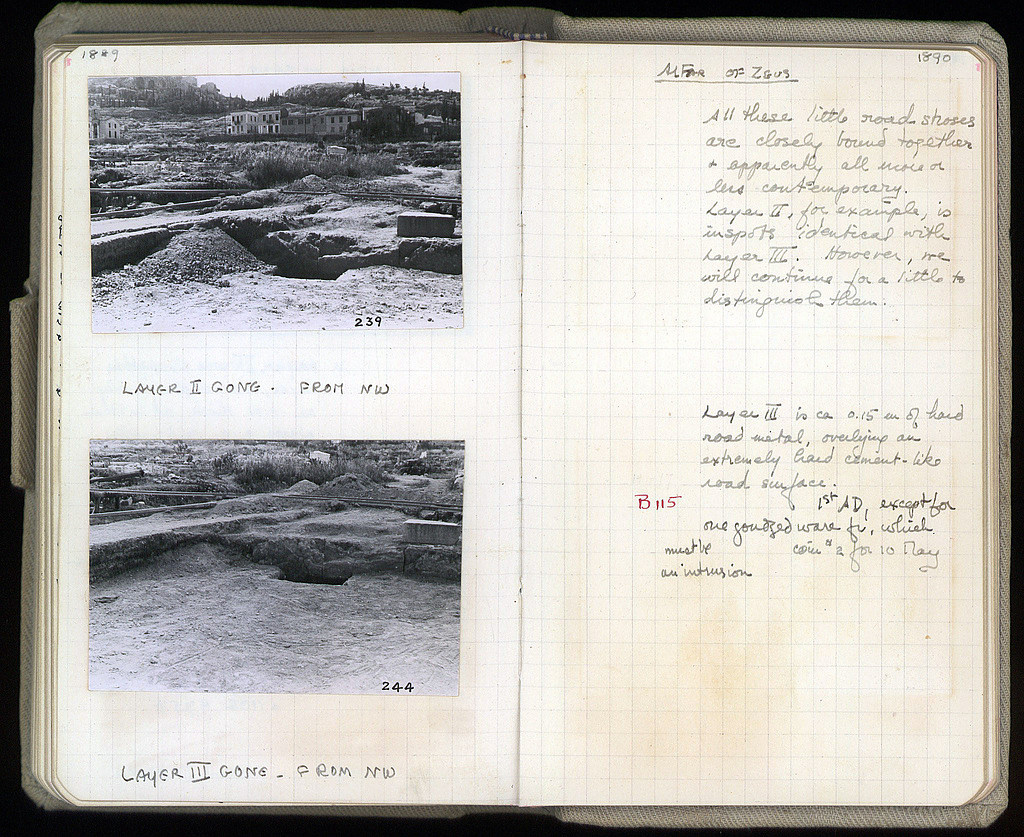 1889
239
LAYER II GONE. FROM NW
244
LAYER III GONE - FROM NW
1890
ALTAR OF ZEUS
All these little road stroses
are closely bound together
+ apparently all more or
less contemporary.
Layer II, for example, is
in spots identical with
Layer III. However, we
will continue for a little to
distinguish them.
Layer III is ca 0.15 m of hard
road metal, overlying an
extremely hard cement-like
road surface.
B 115 1st AD, except for
one gouged ware fr, which
must be coin # 2 for 10 May
an intrusion